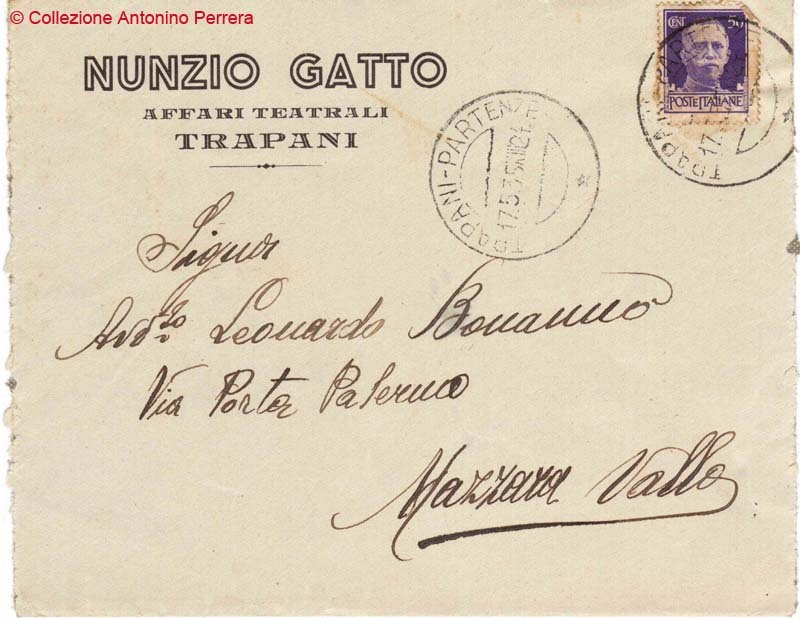 © Collezione Antonino Perrera
NUNZIO GATTO
AFFARI TEATRALI
TRAPANI
CENT 50
POSTE ITALIANE
TRAPANI-PARTENZE
17.5.35 XIII 21
TRAPANI PARTENZE
17.
Signor
Leonardo Bonanno
Via Porta Palermo
Mazzara Vallo